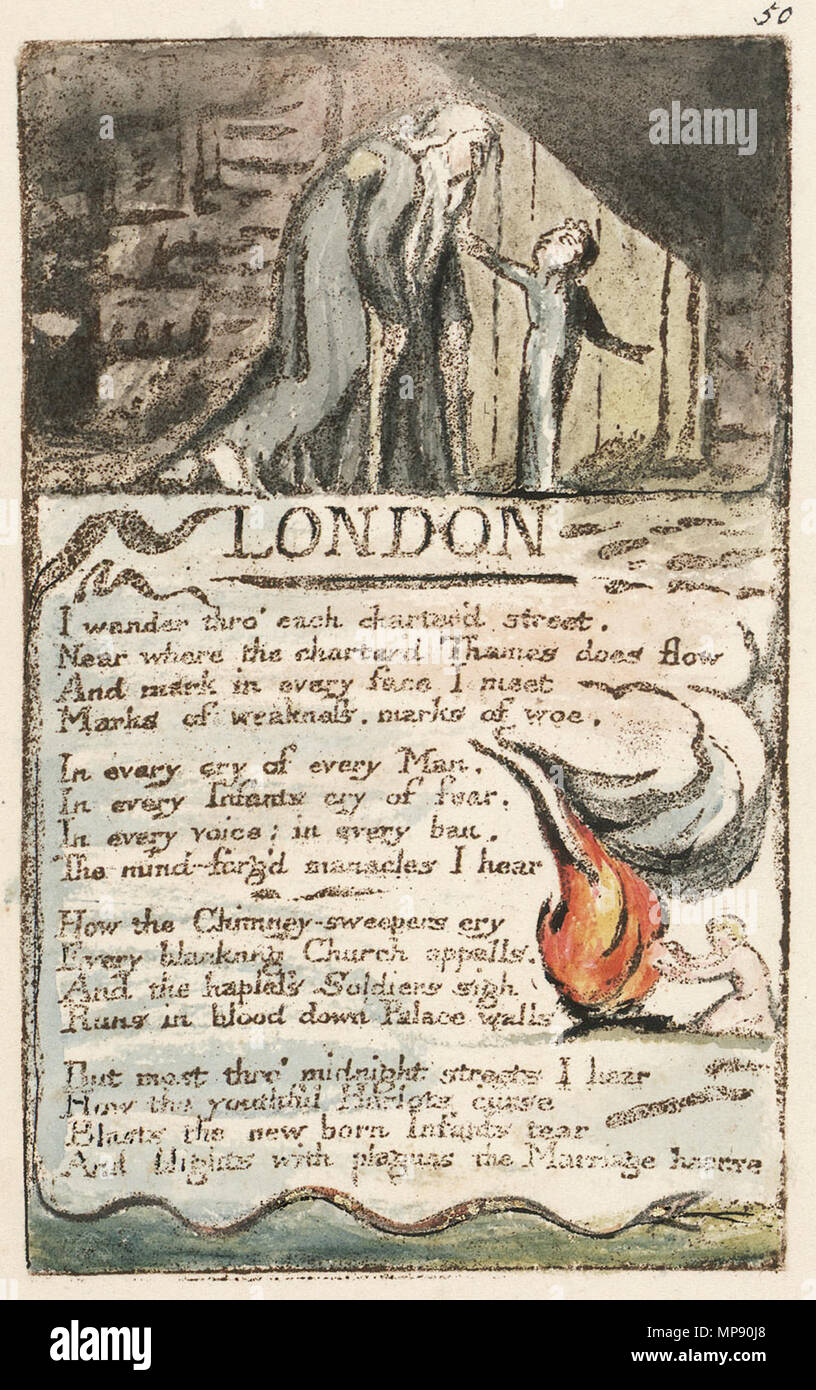 50
alamy
LONDON
I wander thro' each charter'd street.
Near where the charter'd Thames does flow
And mark in every face I meet
Marks of weakness. marks of woe.
In every cry of every Man.
In every Infants cry of fear.
In every voice; in every ban.
The mind-forg'd manacles I hear
How the Chimney-sweepers cry
Every blackning Church appalls.
And the hapless Soldiers sigh
Runs in blood down Palace walls
But most thro' midnight streets I hear
How the youthful Harlots curse
Blasts the new born Infants tear
And blights with plagues the Marriage hearse
alamy
Image ID: MP90J8
www.alamy.com